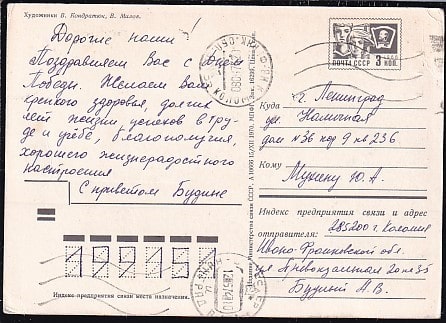 Художники В. Кондратюк, В. Милов.
Дорогие наши!
Поздравляем Вас с Днём
Победы. Желаем вам
крепкого здоровья, долгих
лет жизни, успехов в тру-
де и учебе, благополучия,
хорошего жизнерадостного
настроения
С приветом Будине
ПОЧТА СССР 3 КОП.
Куда
г. Ленинград
ул.
дом №36 кор 9 кв 236
Кому
Мухину Ю. А.
Индекс предприятия связи и адрес
отправителя:
285200 г. Коломыя
Ивано-Франковской обл.
ул. Привокзальная 20 кв 35
Будный А. В.
199151
Индекс предприятия связи места назначения.
Министерство связи СССР.